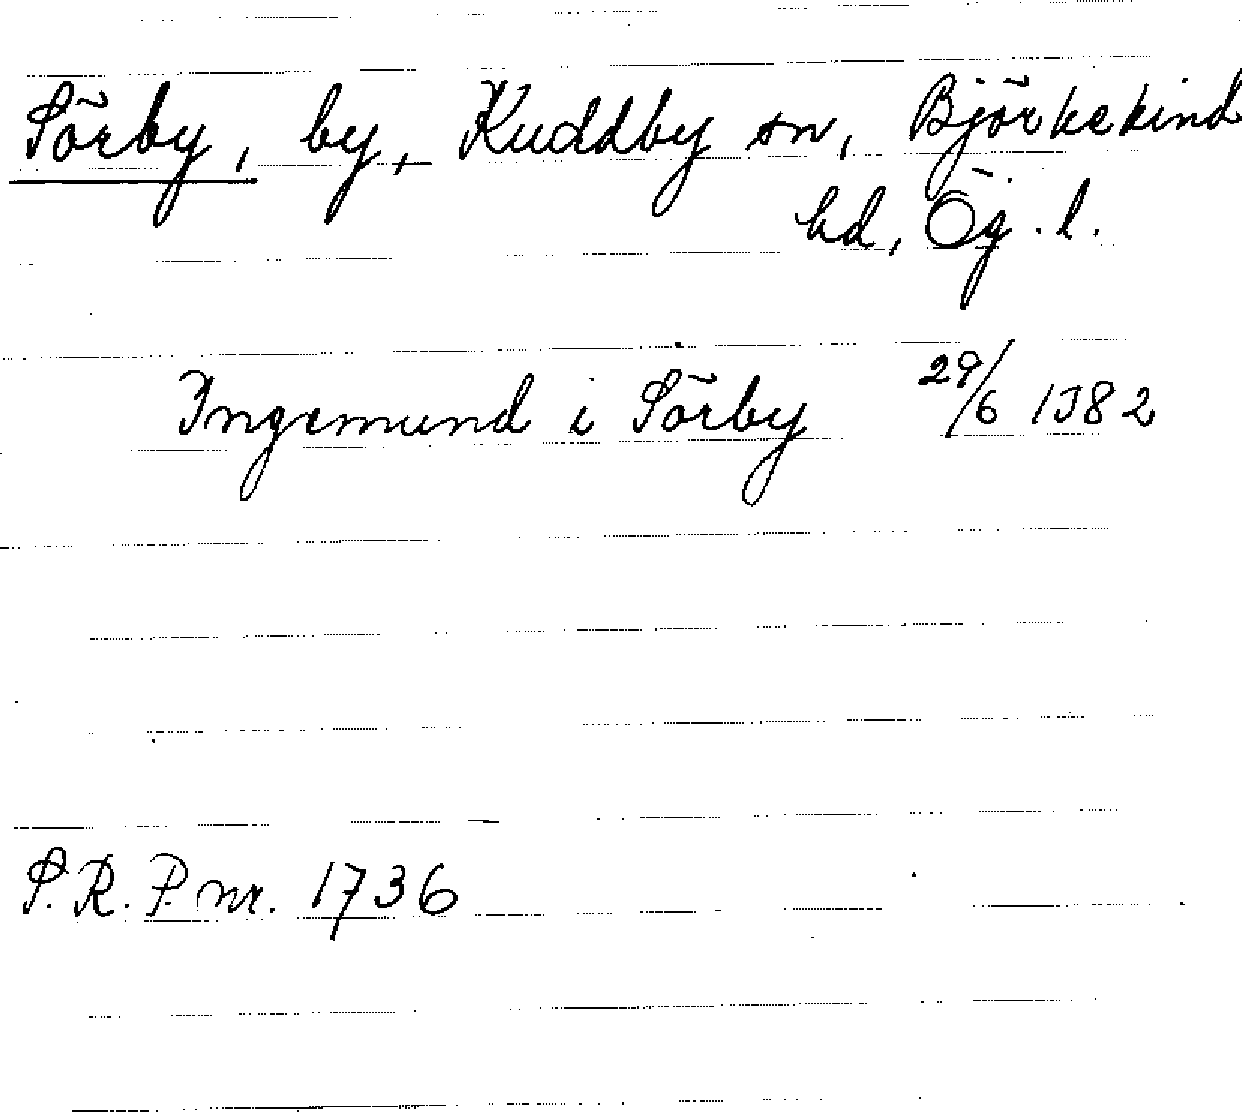 Sörby, by, Kuddby sn, Björkekind
hd, Ög. l.
Ingemund i Sörby 29/6 1382
S.R.P. nr. 1736